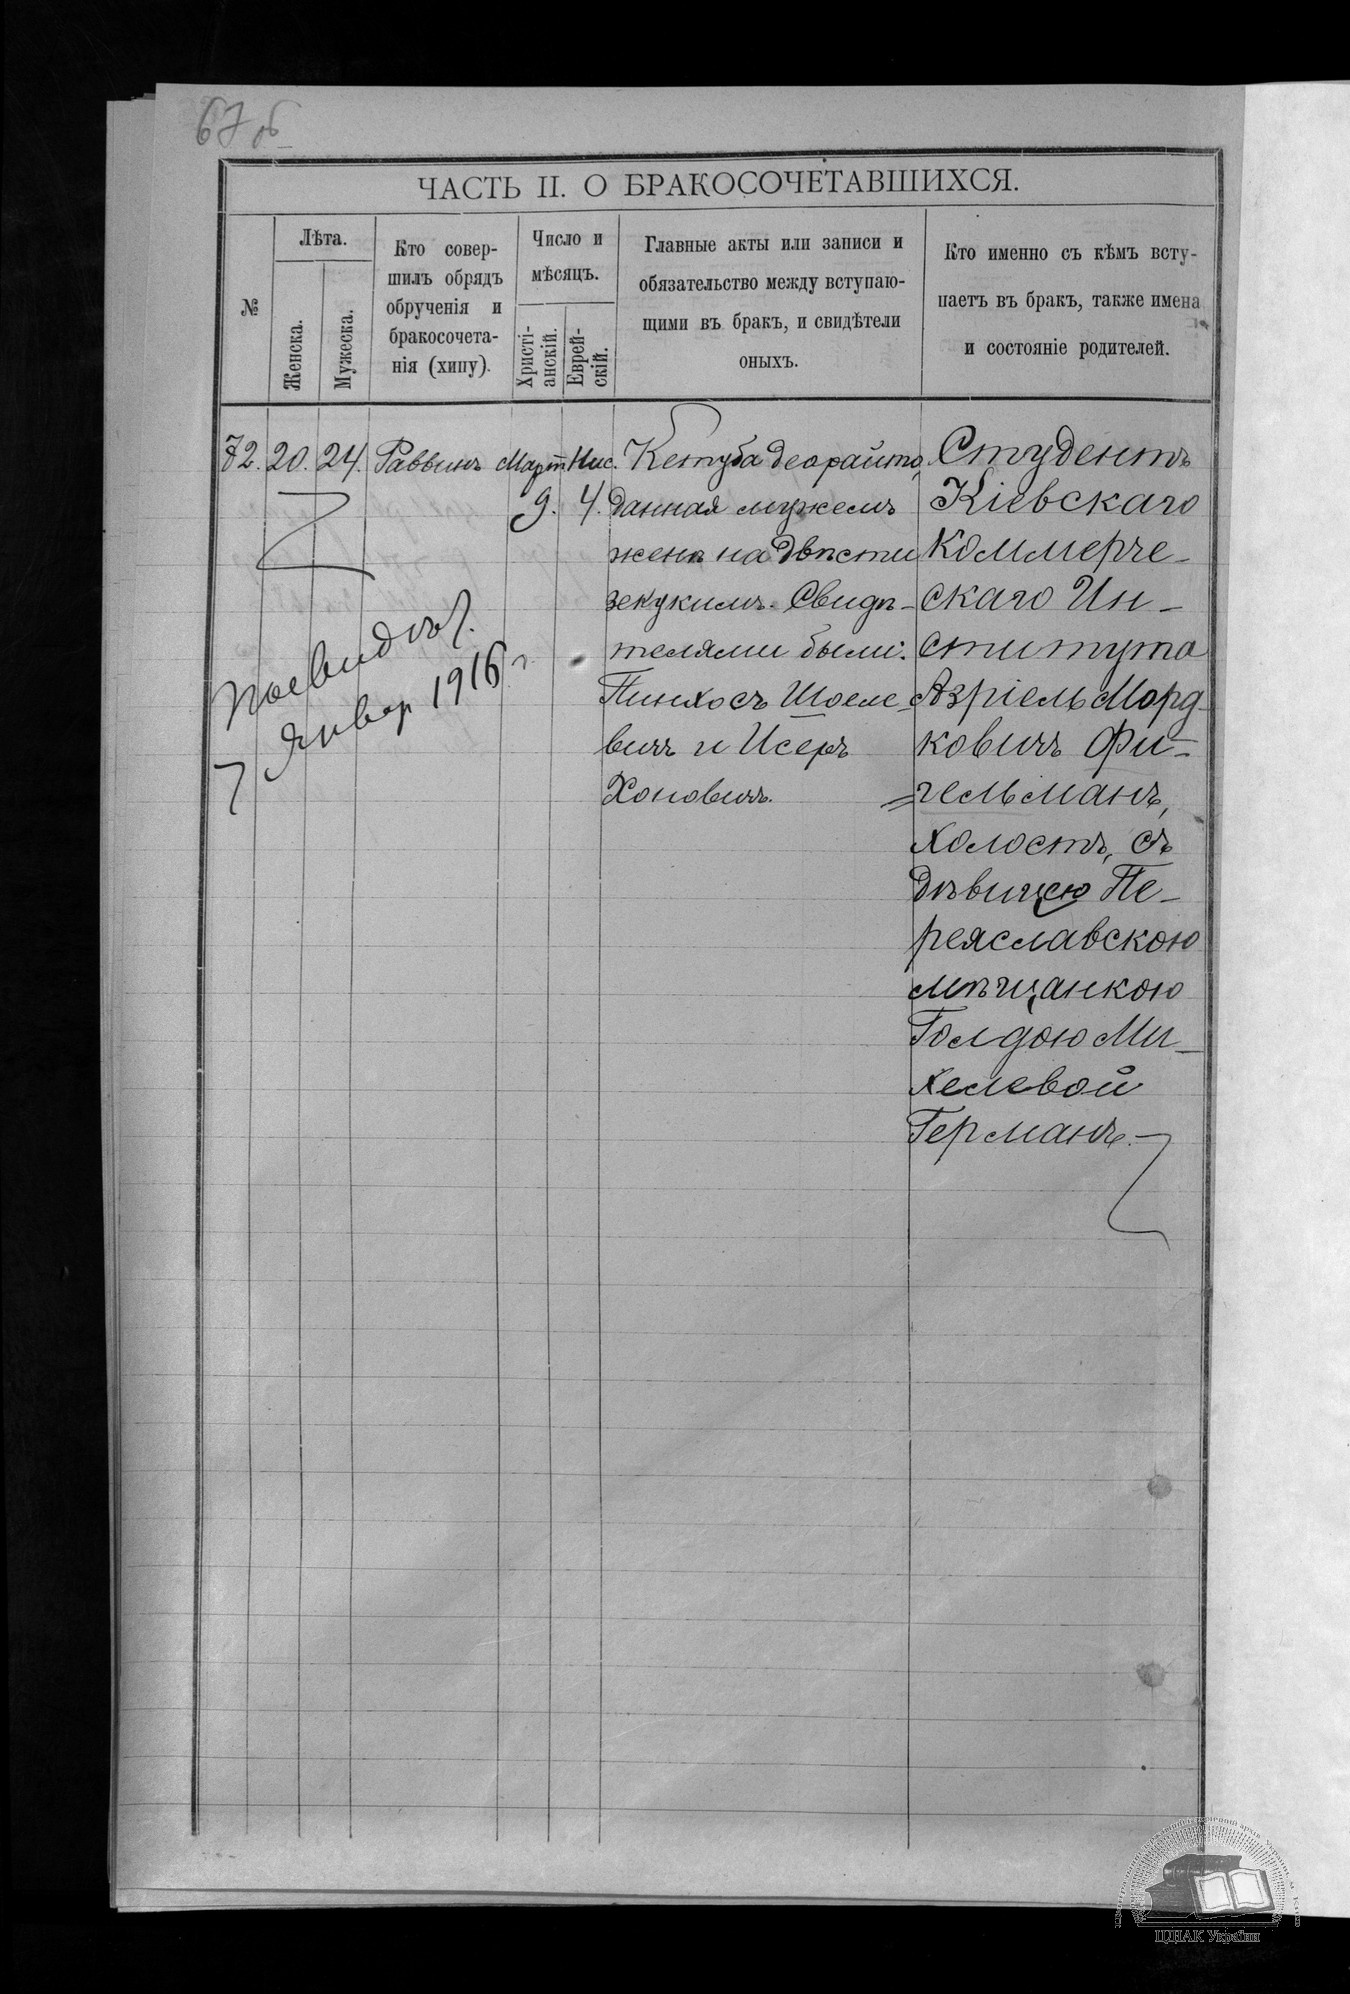 67 об
ЧАСТЬ II. О БРАКОСОЧЕТАВШИХСЯ.
№
Лѣта.
Женска.
Мужеска.
Кто совер-
шилъ обрядъ
обрученія и
бракосочета-
нія (хипу).
Число и
мѣсяцъ.
Христі-
анскій.
Еврей-
скій.
Главные акты или записи и
обязательство между вступаю-
щими въ бракъ, и свидѣтели
оныхъ.
Кто именно съ кѣмъ всту-
паетъ въ бракъ, также имена
и состояніе родителей.
72.
20.
24.
Раввинъ
Март
9.
Нис.
4.
Кетуба деорайто,
данная мужемъ
женѣ на двѣсти
зекукимъ. Свидѣ-
телями были:
Пинхосъ Шоеле-
вичъ и Исеръ
Хоновичъ.
Студентъ
Кіевскаго
Коммерче-
скаго Ин-
ститута
Азріель Морд-
ковичъ Фи-
гельманъ,
холостъ, съ
дѣвицею Пе-
реяславскою
мѣщанкою
Голдою Ми-
хелевой
Германъ.
7 Январ 1916 г.
ЦДІАК України